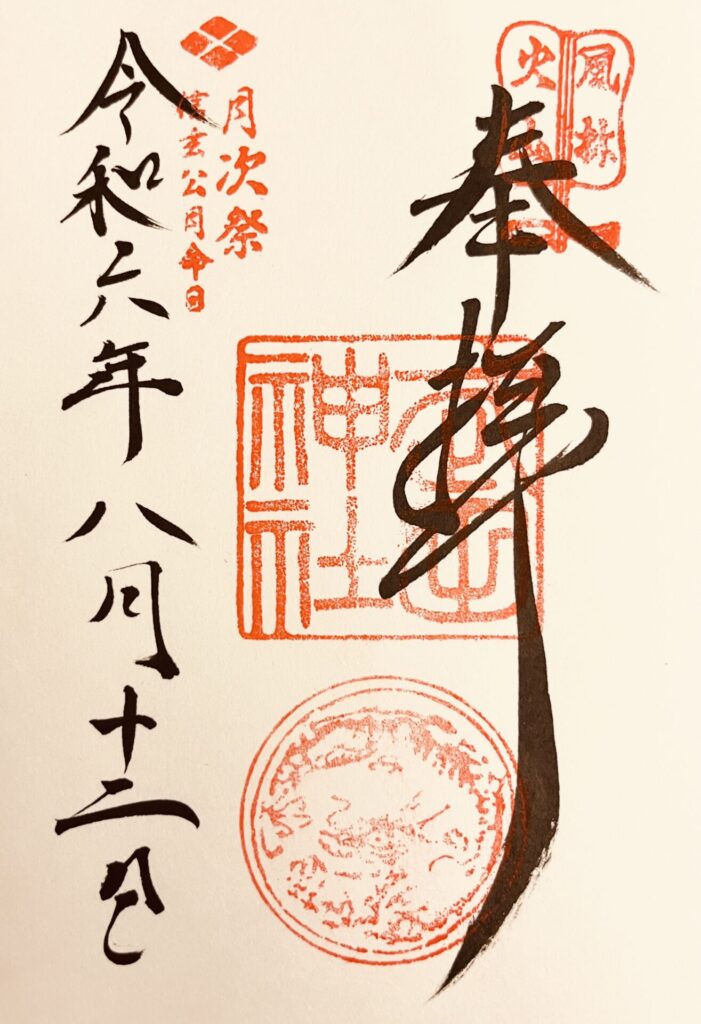 風林
火山
奉拝
神社
月次祭
信玄公月命日
令和六年八月十二日